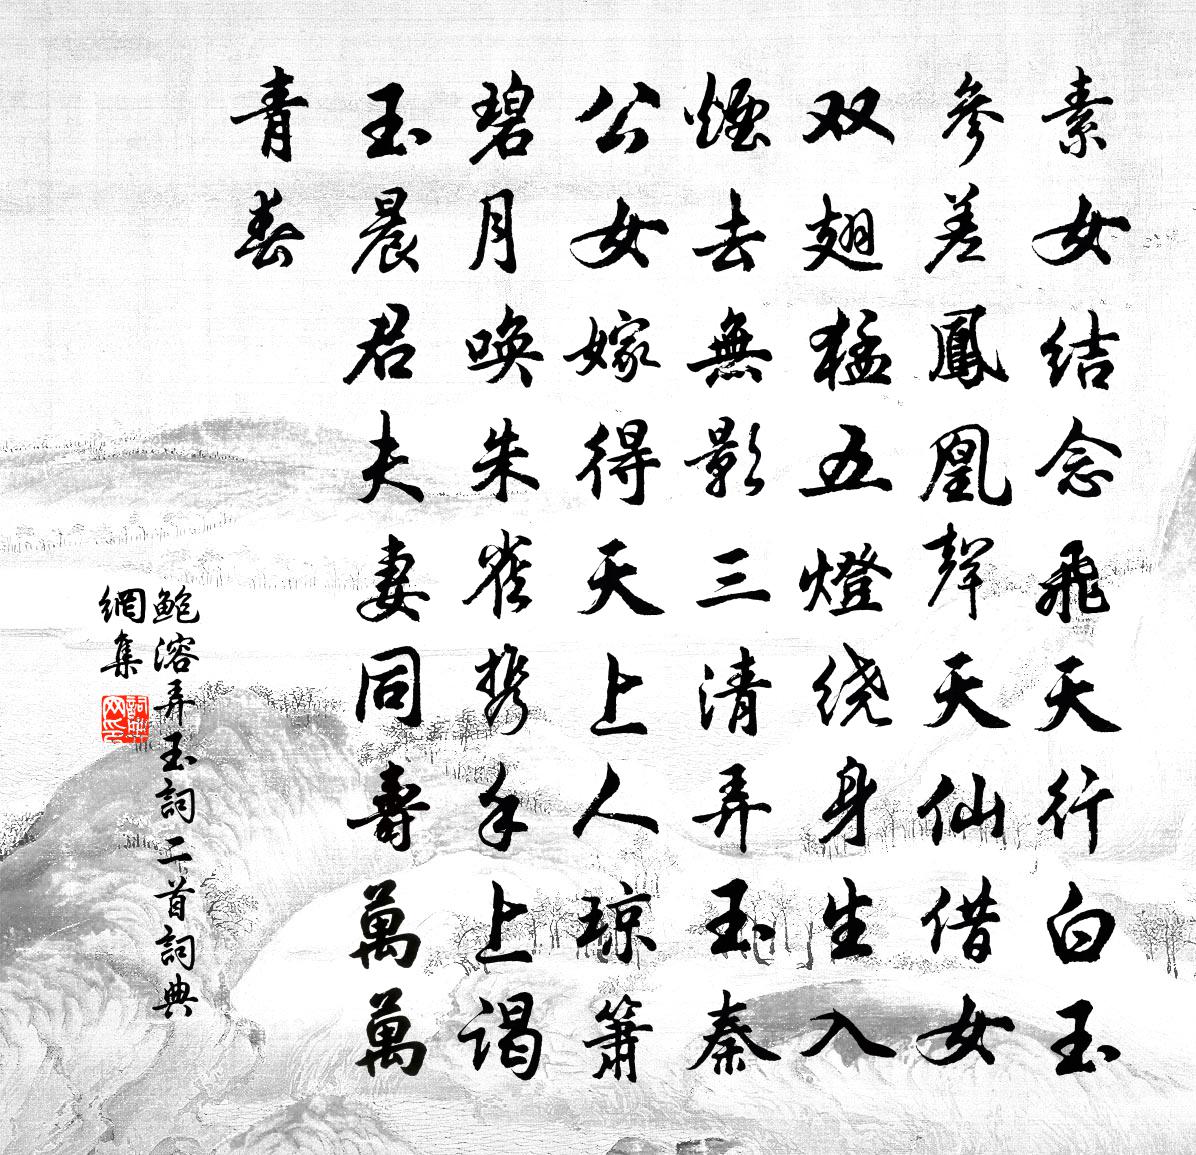 素女结念飛天行白玉
參差鳳凰聲天仙借女
双翅猛五燈绕身生入
煙去無影三清弄玉秦
公女嫁得天上人琼簫
碧月喚朱雀携手上谒
玉晨君夫妻同壽萬萬
青春
鮑溶弄玉詞二首詞典
網集